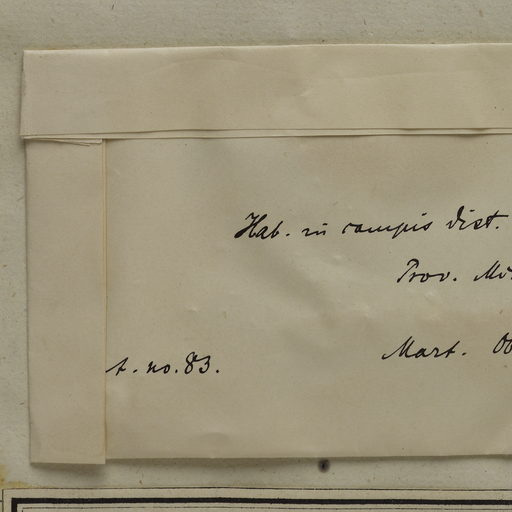 Hab. in campis dist.
Prov. Mi
t. no. 83. Mart. Ob